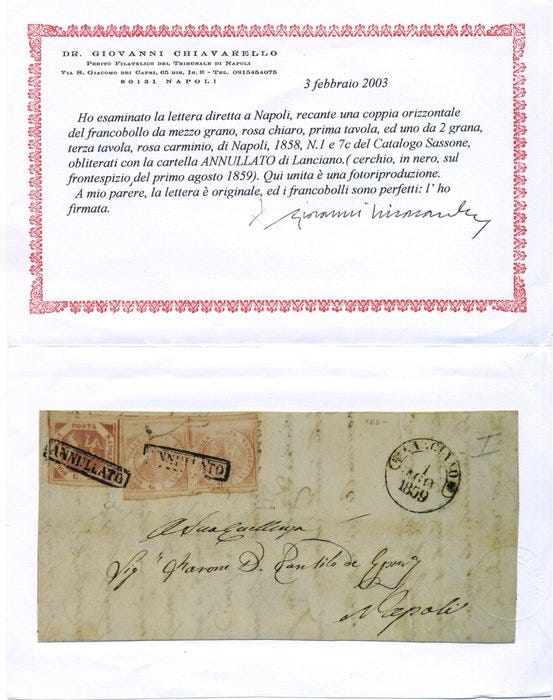 DR. GIOVANNI CHIAVARELLO
PERITO FILATELICO DEL TRIBUNALE DI NAPOLI
VIA S. GIACOMO DEI CAPRI, 65 BIS, IS. E - TEL. 0815454075
80131 NAPOLI
3 febbraio 2003
Ho esaminato la lettera diretta a Napoli, recante una coppia orizzontale
del francobollo da mezzo grano, rosa chiaro, prima tavola, ed uno da 2 grana,
terza tavola, rosa carminio, di Napoli, 1858, N.1 e 7c del Catalogo Sassone,
obliterati con la cartella ANNULLATO di Lanciano.( cerchio, in nero, sul
frontespizio del primo agosto 1859). Qui unita è una fotoriproduzione.
A mio parere, la lettera è originale, ed i francobolli sono perfetti: l' ho
firmata.
Giovanni
POSTA
ANNULLATO
ANNULLATO
100-
I
LANCIANO
1
AGO
1859
A Sua Eccellenza
Sig.r Barone D.
Napoli